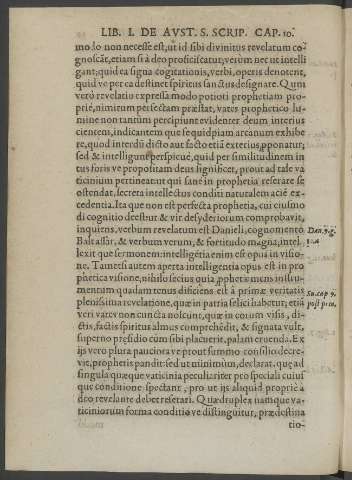 LIB. I. DE AVST. S. SCRIP. CAP. 10.
mo lo non necesse est, ut id sibi divinitus revelatum co-
gnoscāt, etiam si à deo proficiscatur, verùm nec ut intelli
gant; quid ea signa cogitationis, verbi, operis denotent,
quid ve per ea destinet spiritus sanctus designare. Qum
verò revelatio expressa modo potiori prophetiam pro-
priè, nimirum perfectam præstat, vates prophetico lu-
mine non tantùm percipiunt evidenter deum interius
cientem, indicantem que se quidpiam arcanum exhibe
re, quod interdū dicto aut facto etiā exterius ponatur;
sed & intelligunt perspicuè, quid per similitudinem in
tus foris ve propositam deus significet, prout ad tale va
ticinium pertineat ut qui sanè in prophetia reserare se
ostendat, secreta intellectus conditi naturalem aciē ex-
cedentia. Ita que non est perfecta prophetia, cui eiusmo
di cognitio deest ut & vir desyderiorum comprobavit,
inquiens, verbum revelatum est Danieli, cognomento
Baltassar, & verbum verum, & fortitudo magna, intel-
lexit que sermonem: intelligētia enim est opus in visio-
ne. Tametsi autem aperta intelligentia opus est in pro
phetica visione, nihilo secius quia prophetæ mens instru-
mentum quadam tenus deficiens est à primæ veritatis
plenissima revelatione, quæ in patria felici habetur; etiā
veri vates non cuncta noscunt, quæ in eorum visis, di-
ctis, factis spiritus almus comprehēdit, & signata vult,
superno præsidio cùm sibi placuerit, palàm eruenda. Ex
ijs verò plura pauciora ve prout summo consilio decre-
vit, prophetis pandit: sed ut minimùm, declarat, quæ ad
singula quæque vaticinia peculiariter pro speciali cuius
que conditione spectant, pro ut ijs aliquid propriè a
deo revelante debet reserari. Quædruplex namque va-
ticiniorum forma conditio ve distinguitur, prædestina
tio-
Dan. 9. g.
Su. cap 9.
post prin.